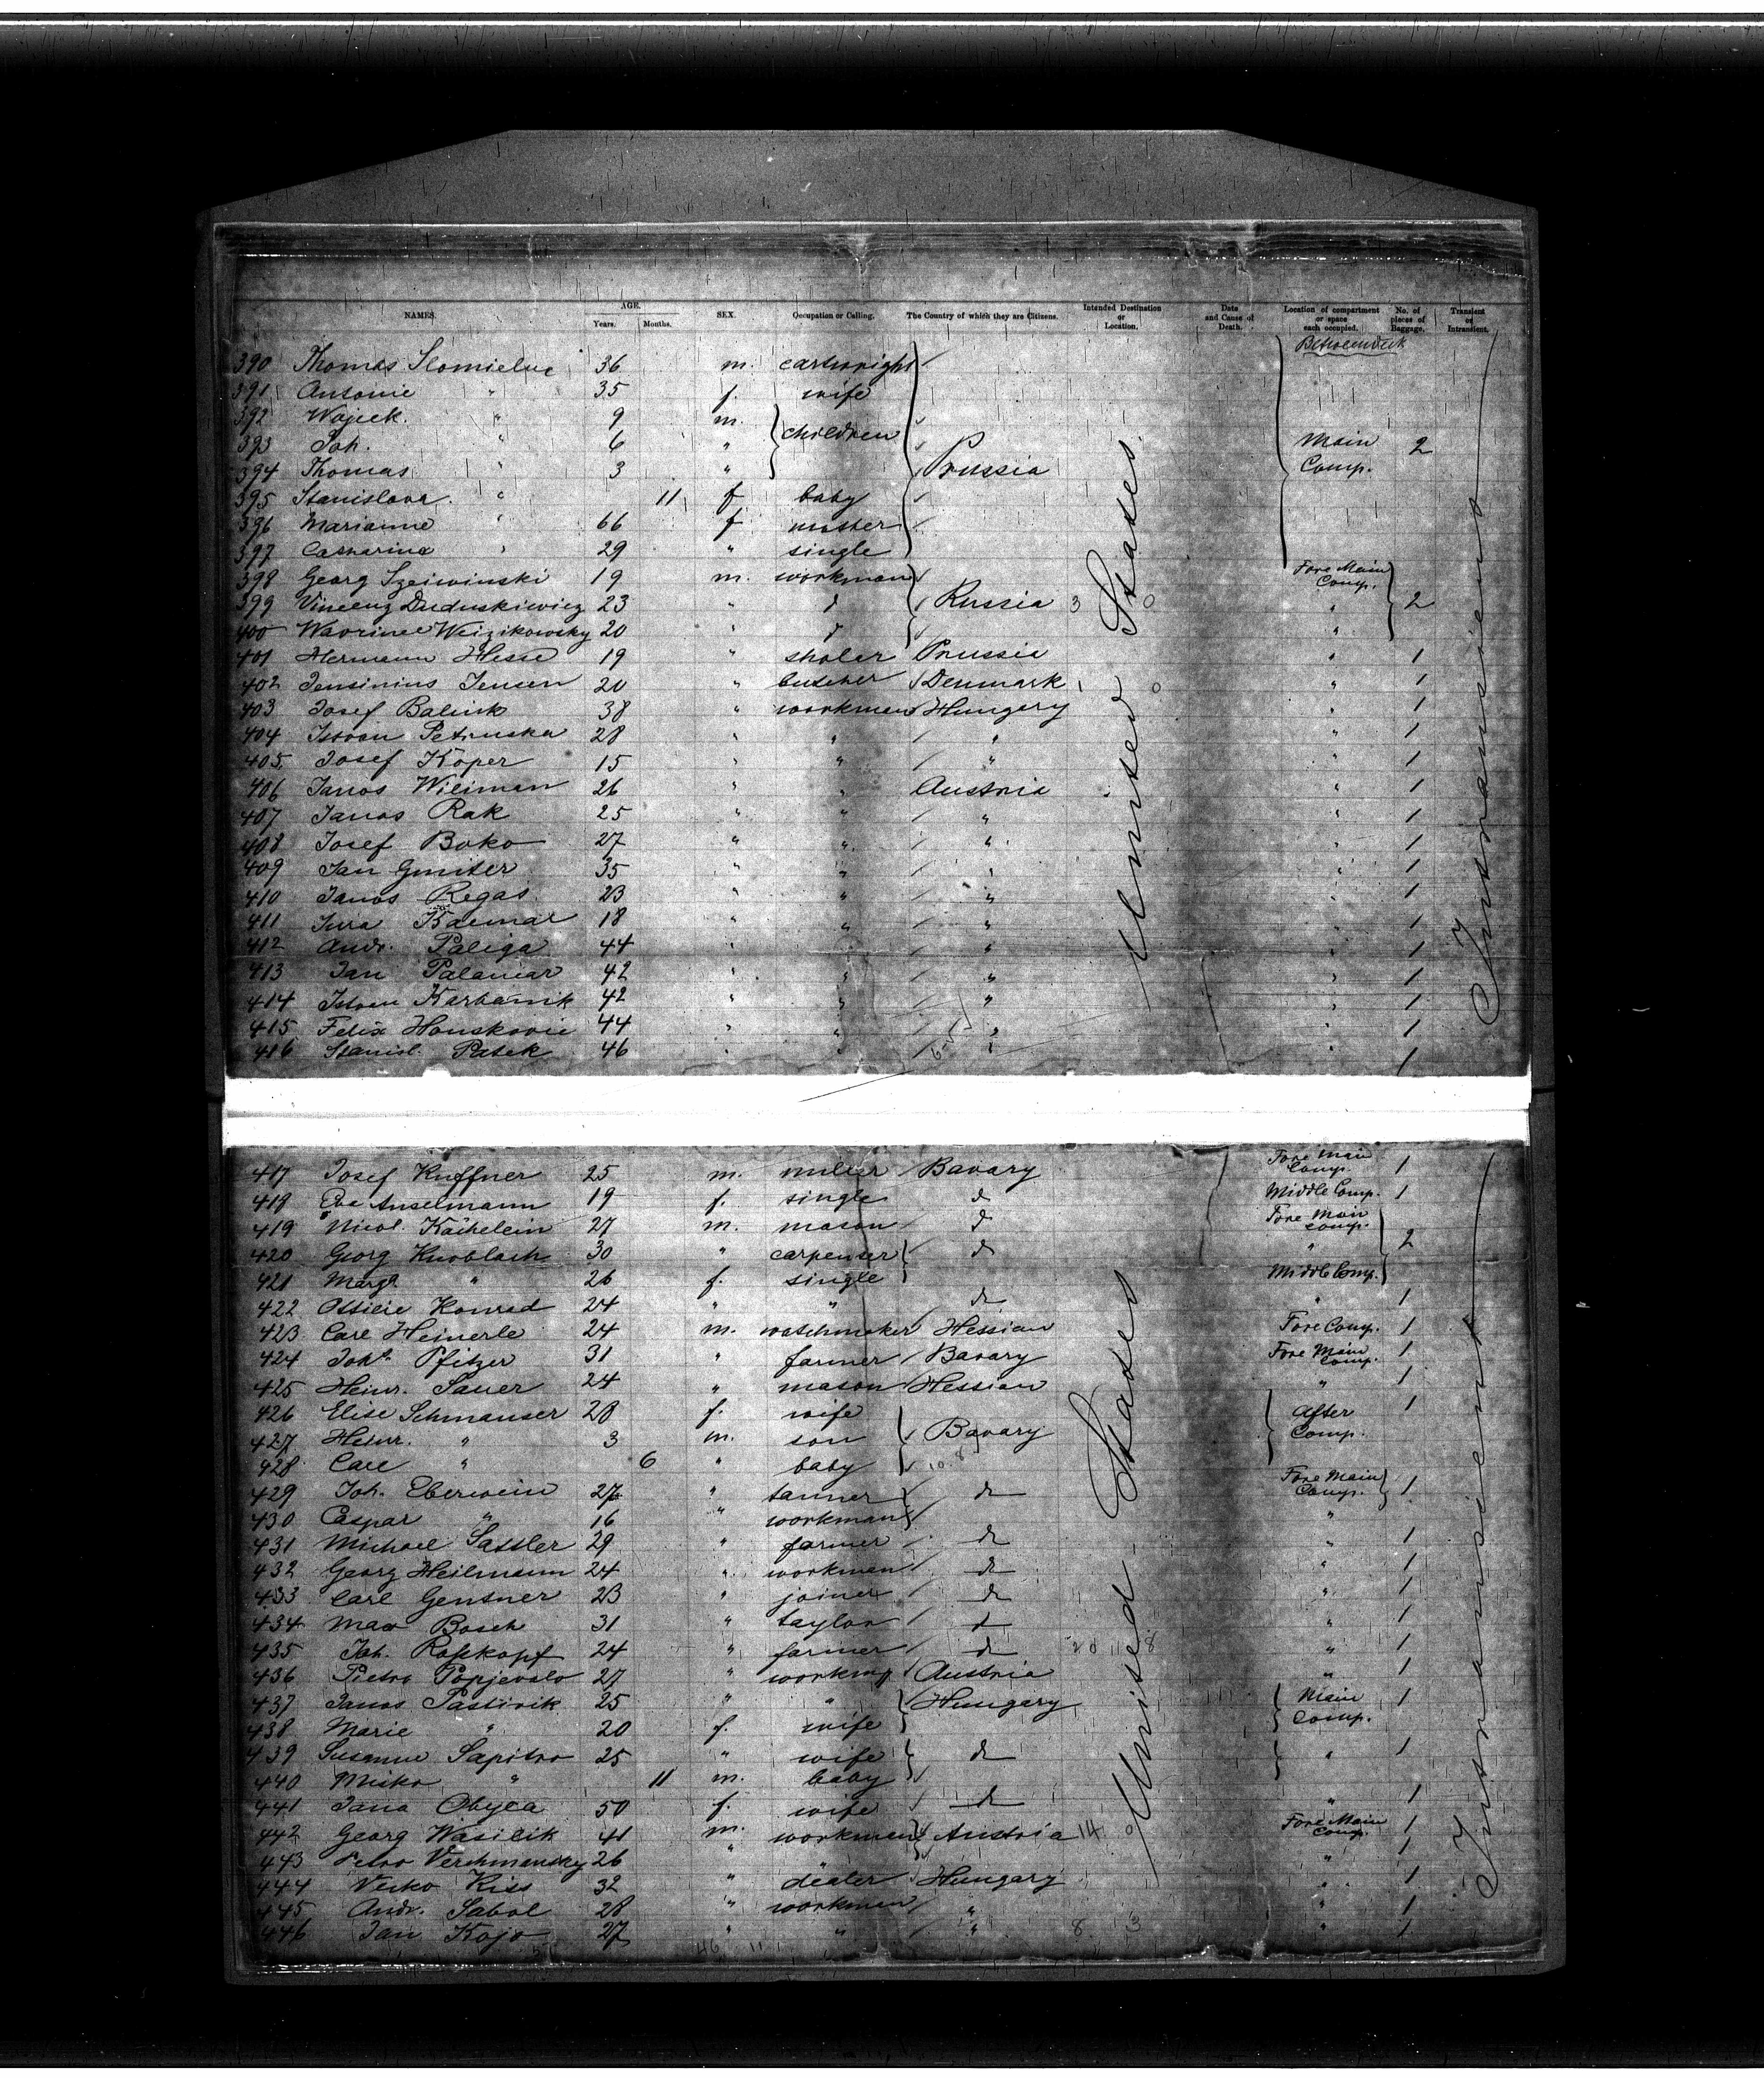 NAMES. AGE. Years. Months. SEX. Occupation or Calling. The Country of which they are Citizens. Intended Destination or Location. Date and Cause of Death. Location of compartment or space each occupied. No. of pieces of Baggage. Transient or Intransient.
Betweendeck
390 Thomas 36 m. cartwright
391 Antonie " 35 f. wife
392 Wojeck. " 9 m. children
393 Joh. " 6 " Main Comp. 2
394 Thomas " 3 " Prussia
395 Stanislava. " 11 f baby
396 Marianne " 66 f mother
397 Catharina " 29 " single
398 Georg Szeiwinski 19 m. workman Fore Main Comp.
399 Vincenz Duduskiewicz 23 " d Russia 3 0 " 2
400 Weizikowsky 20 " d "
401 Hermann Hesse 19 " sholar Prussia " 1
402 Jensinius Jensen 20 " butcher Denmark 1 0 " 1
403 Josef Balink 38 " workmen Hungery " 1
404 Istvan Petruska 28 " " " " 1
405 Josef Köper 15 " " " " 1
406 Janos Wiliman 26 " " Austria " 1
407 Janos Rak 25 " " " " 1
408 Josef Boko 27 " " " " 1
409 Jan Gmiter 35 " " " " 1
410 Janos Regas 23 " " " " 1
411 Jura 18 " " " " 1
412 Andr. Paliga 44 " " " " 1
413 Jan Palamar 42 " " " " 1
414 Istvan Karbanik 42 " " " " 1
415 Felix Houskovic 44 " " " " 1
416 Stanisl. Patek 46 " " " " 1
United States
Intransient
417 Josef Kuffner 25 m. miller Bavary Fore Main Comp. 1
418 Eva Anselmann 19 f. single d Middle Comp. 1
419 Nicol. Kächelein 27 m. mason d Fore Main Comp.
420 Georg Knoblach 30 " carpenter d " 2
421 Margt. " 26 f. single Middle Comp.
422 Ottilie Konrad 24 " " d " 1
423 Carl Heinerle 24 m. watchmaker Hessian Fore Comp. 1
424 Joh. Pfitzer 31 " farmer Bavary Fore Main Comp. 1
425 Heinr. Sauer 24 " mason Hessian " 1
426 Elise Schmauser 28 f. wife After Comp. 1
427 Heinr. " 3 m. son Bavary
428 Carl " 6 " baby
429 Joh. Eberwein 27 " tanner d Fore Main Comp. 1
430 Caspar " 16 " workman "
431 Michael Sattler 29 " farmer d " 1
432 Georg Heilmann 24 " workmen d " 1
433 Carl Gentner 23 " joiner d " 1
434 Max Bosch 31 " taylor d " 1
435 Joh. Roßkopf 24 " farmer d " 1
436 Pietro Popjevalo 27 " workmg Austria " 1
437 Janos Pastirik 25 " " Hungary Main Comp. 1
438 Marie " 20 f. wife
439 Susanne Sapitro 25 " wife d " 1
440 Misko " 11 m. baby
441 Jana Obyca 50 f. wife d " 1
442 Georg Wasilik 41 m. workmen Austria 14 0 Fore Main Comp. 1
443 Petro Verchmansky 26 " " 1
444 Verko Kiss 32 " dealer Hungary " 1
445 Andr. Sabol 28 " workmen " " 1
446 Jan Kojo 27 " " " 8 3 " 1
United States
Intransient